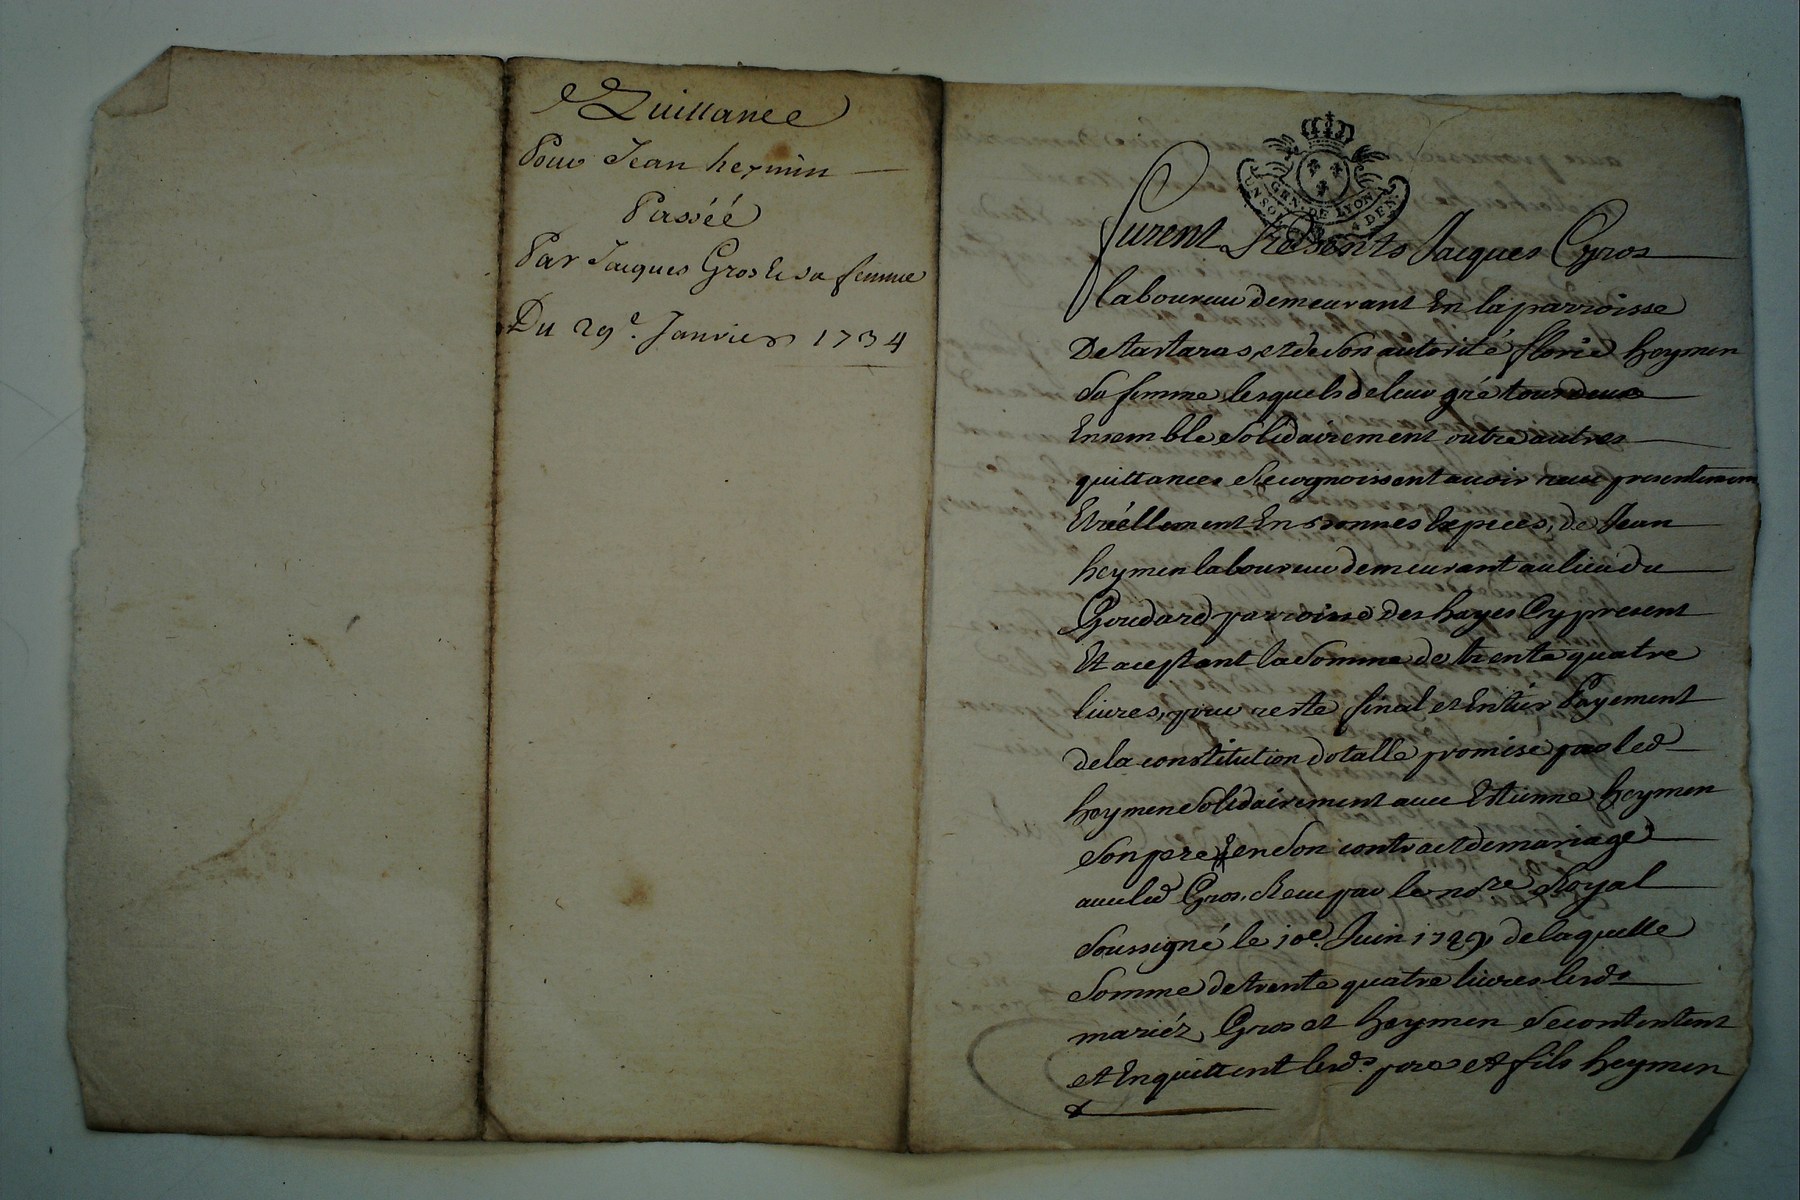 Quittance
Pour Jean heymin
Passéé
Par Jacques Gros & sa femme
Du 29e. Janvier 1734
GEN. DE LYON
UN SOL DEN.
Furent Presents Jacques Gros
laboureur demeurant En la parroisse
De tartaras, et de son autorité florie heymen
Sa femme lesquels de leur gré tous deux
Ensemble Solidairement outre autres
quittances Recognoissent avoir receu presentement
Et réellement En bonnes Especes, de Jean
heymen laboureur demeurant au lieu du
Goudard parroisse des hayes Cy present
Et aceptant la Somme de trente quatre
livres, pour reste final et Entier Payement
de la constitution dotalle promise par led
heymen Solidairement avec Estienne heymen
Son pere en Son contract de mariage
avec led Gros, Receu par le nore Royal
Soussigné le 10e. Juin 1729, de laquelle
Somme de trente quatre livres lesds
mariéz Gros et heymen Se contentent
et En quittent lesds. pere et fils heymen